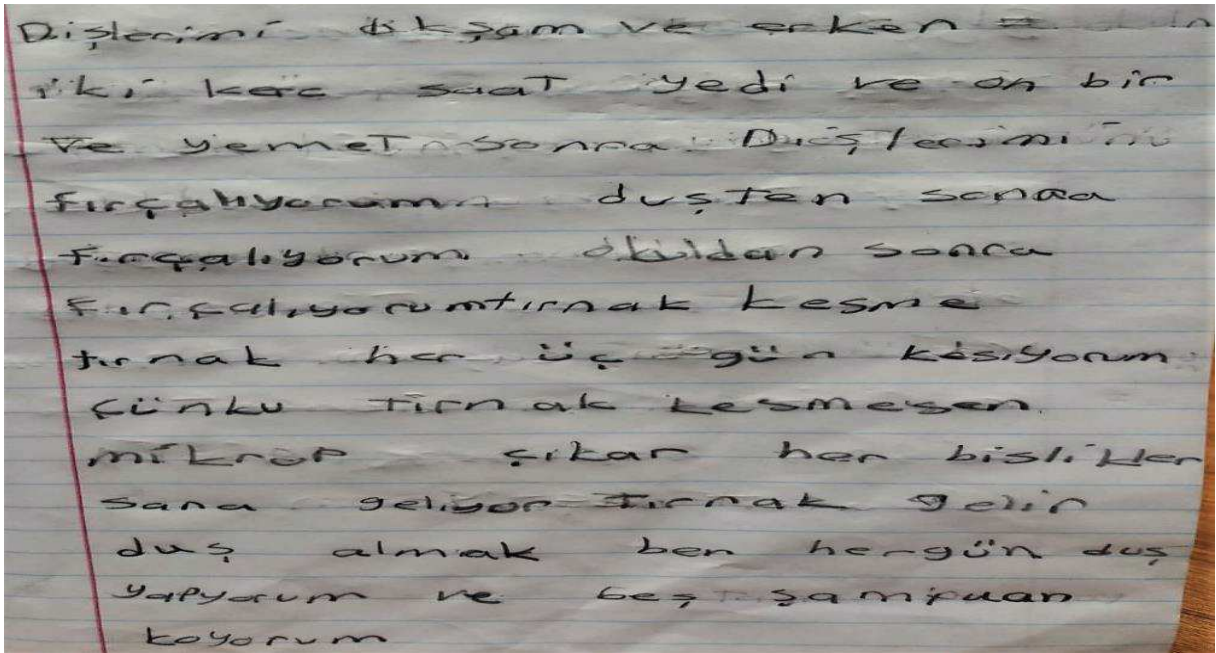 Dişlerimi akşam ve erken
iki kere saat yedi ve on bir
Ve yemeT sonra Dişlerimi
fırçalıyorum duşTen sonra
fırçalıyorum okuldan sonra
fırçalıyorumtırnak kesme
tırnak her üç gün kesiyorum
çünku Tirnak kesmesen
mikrop çıkar her bislikler
sana geliyor Tırnak gelir
duş almak ben hergün duş
yapyorum ve beş şampuan
koyorum